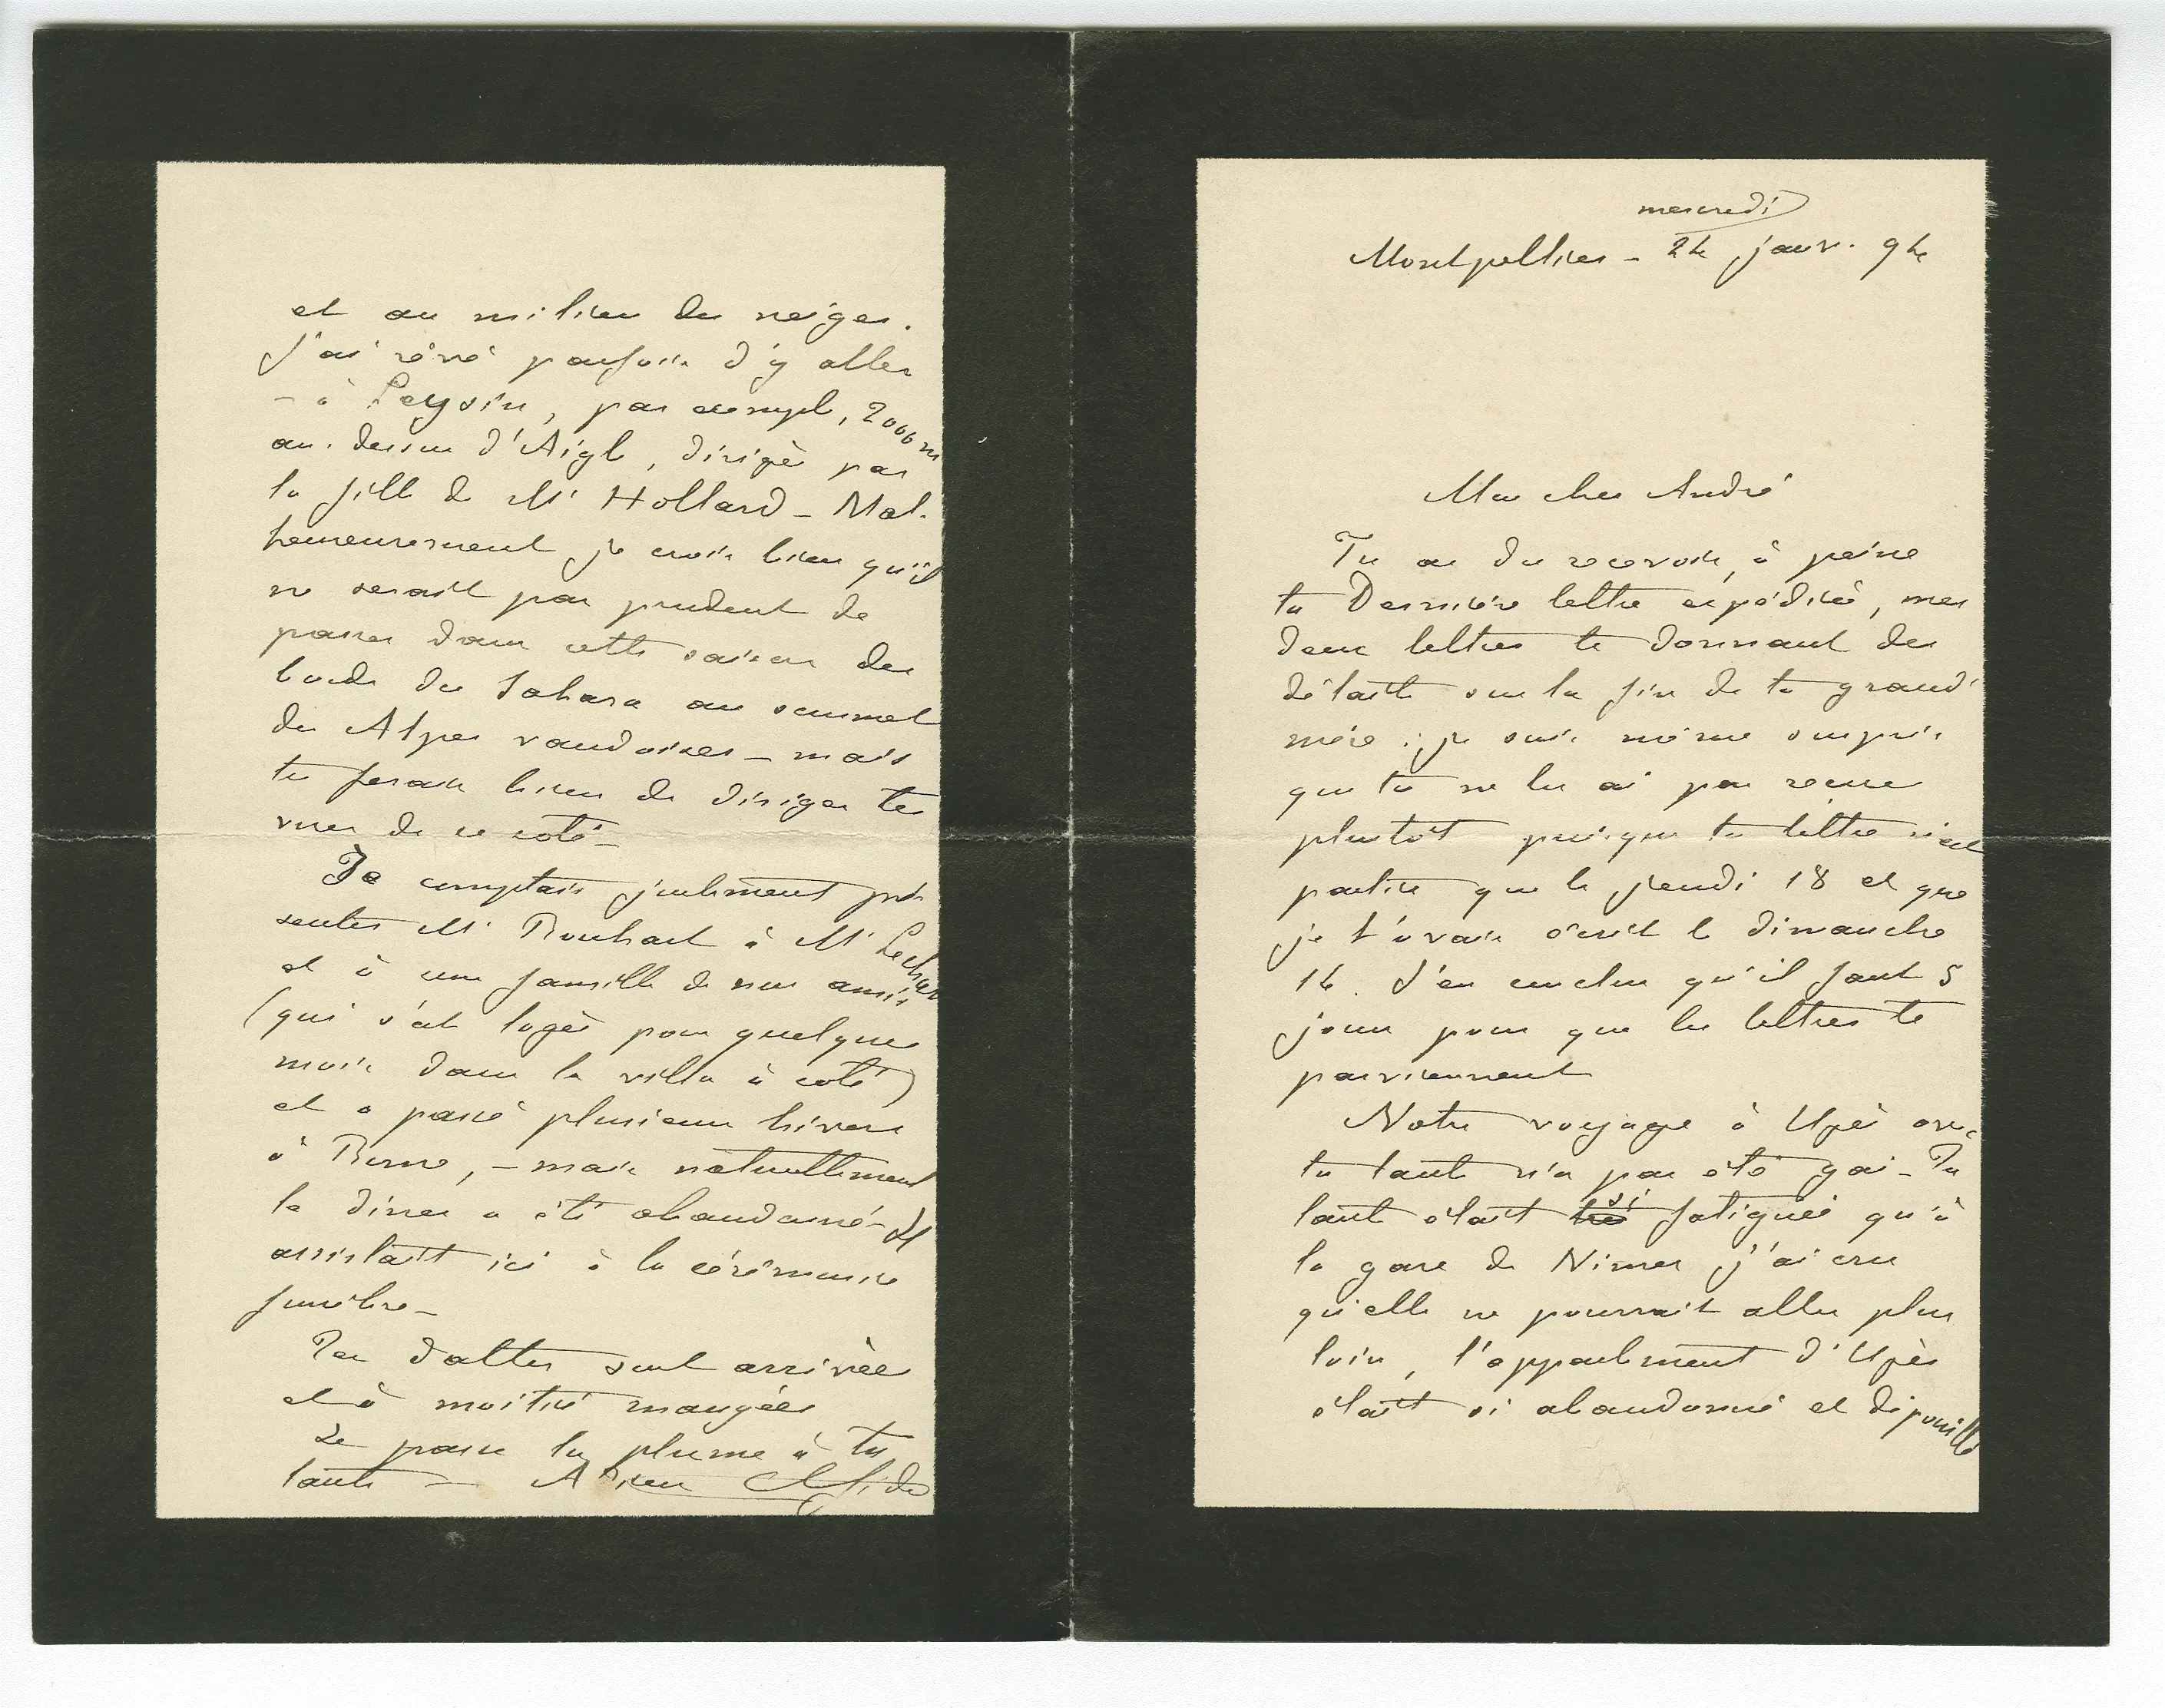 mercredi
Montpellier - 24 janv. 94
Mon cher André
Tu as du recevoir, à peine
ta Dernière lettre expédiée, mes
deux lettres te donnant des
détails sur la fin de ta grand'
mère ; je suis même surpris
que tu ne les ai pas reçues
plustôt puisque ta lettre n'est
partie que le jeudi 18 et que
je t'avais écrit le dimanche
14. J'en conclus qu'il faut 5
jours pour que les lettres te
parviennent
Notre voyage à Uzès avec
ta tante n'a pas été gai - Ta
tante était très si fatiguée qu'à
la gare de Nimes j'ai cru
qu'elle ne pourrait aller plus
loin, l'appartement d'Uzès
était si abandonné et dépouillé
et au milieu des neiges.
J'ai rêvé parfois d'y aller
- à Leysin, par exemple, 2000 m
au-dessus d'Aigle, dirigé par
la fille de Mr Hollard - Mal-
heureusement je crois bien qu'il
ne serait pas prudent de
passer dans cette saison des
bords du Sahara au sommet
des Alpes vaudoises - mais
tu ferais bien de diriger tes
vues de ce coté -
Je comptais justement pré
senter Mr à Mr
et à une famille de nos amis
(qui s'est logée pour quelques
mois dans la villa à coté)
et a passé plusieurs hivers
à - mais naturellement
le diner a été abandonné - Il
assistait ici à la cérémonie
funèbre -
Tes dattes sont arrivées
et à moitié mangées
Je passe la plume à ta
tante - Adieu Ch Gide